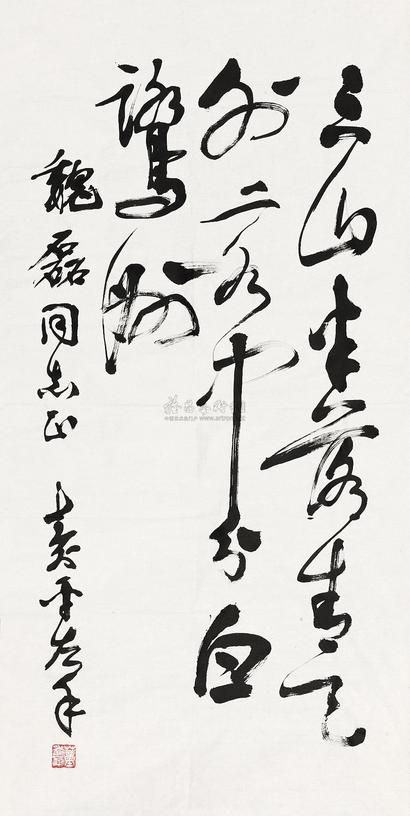 三山半落青天
外二水中分白
鷺洲
魏磊同志正